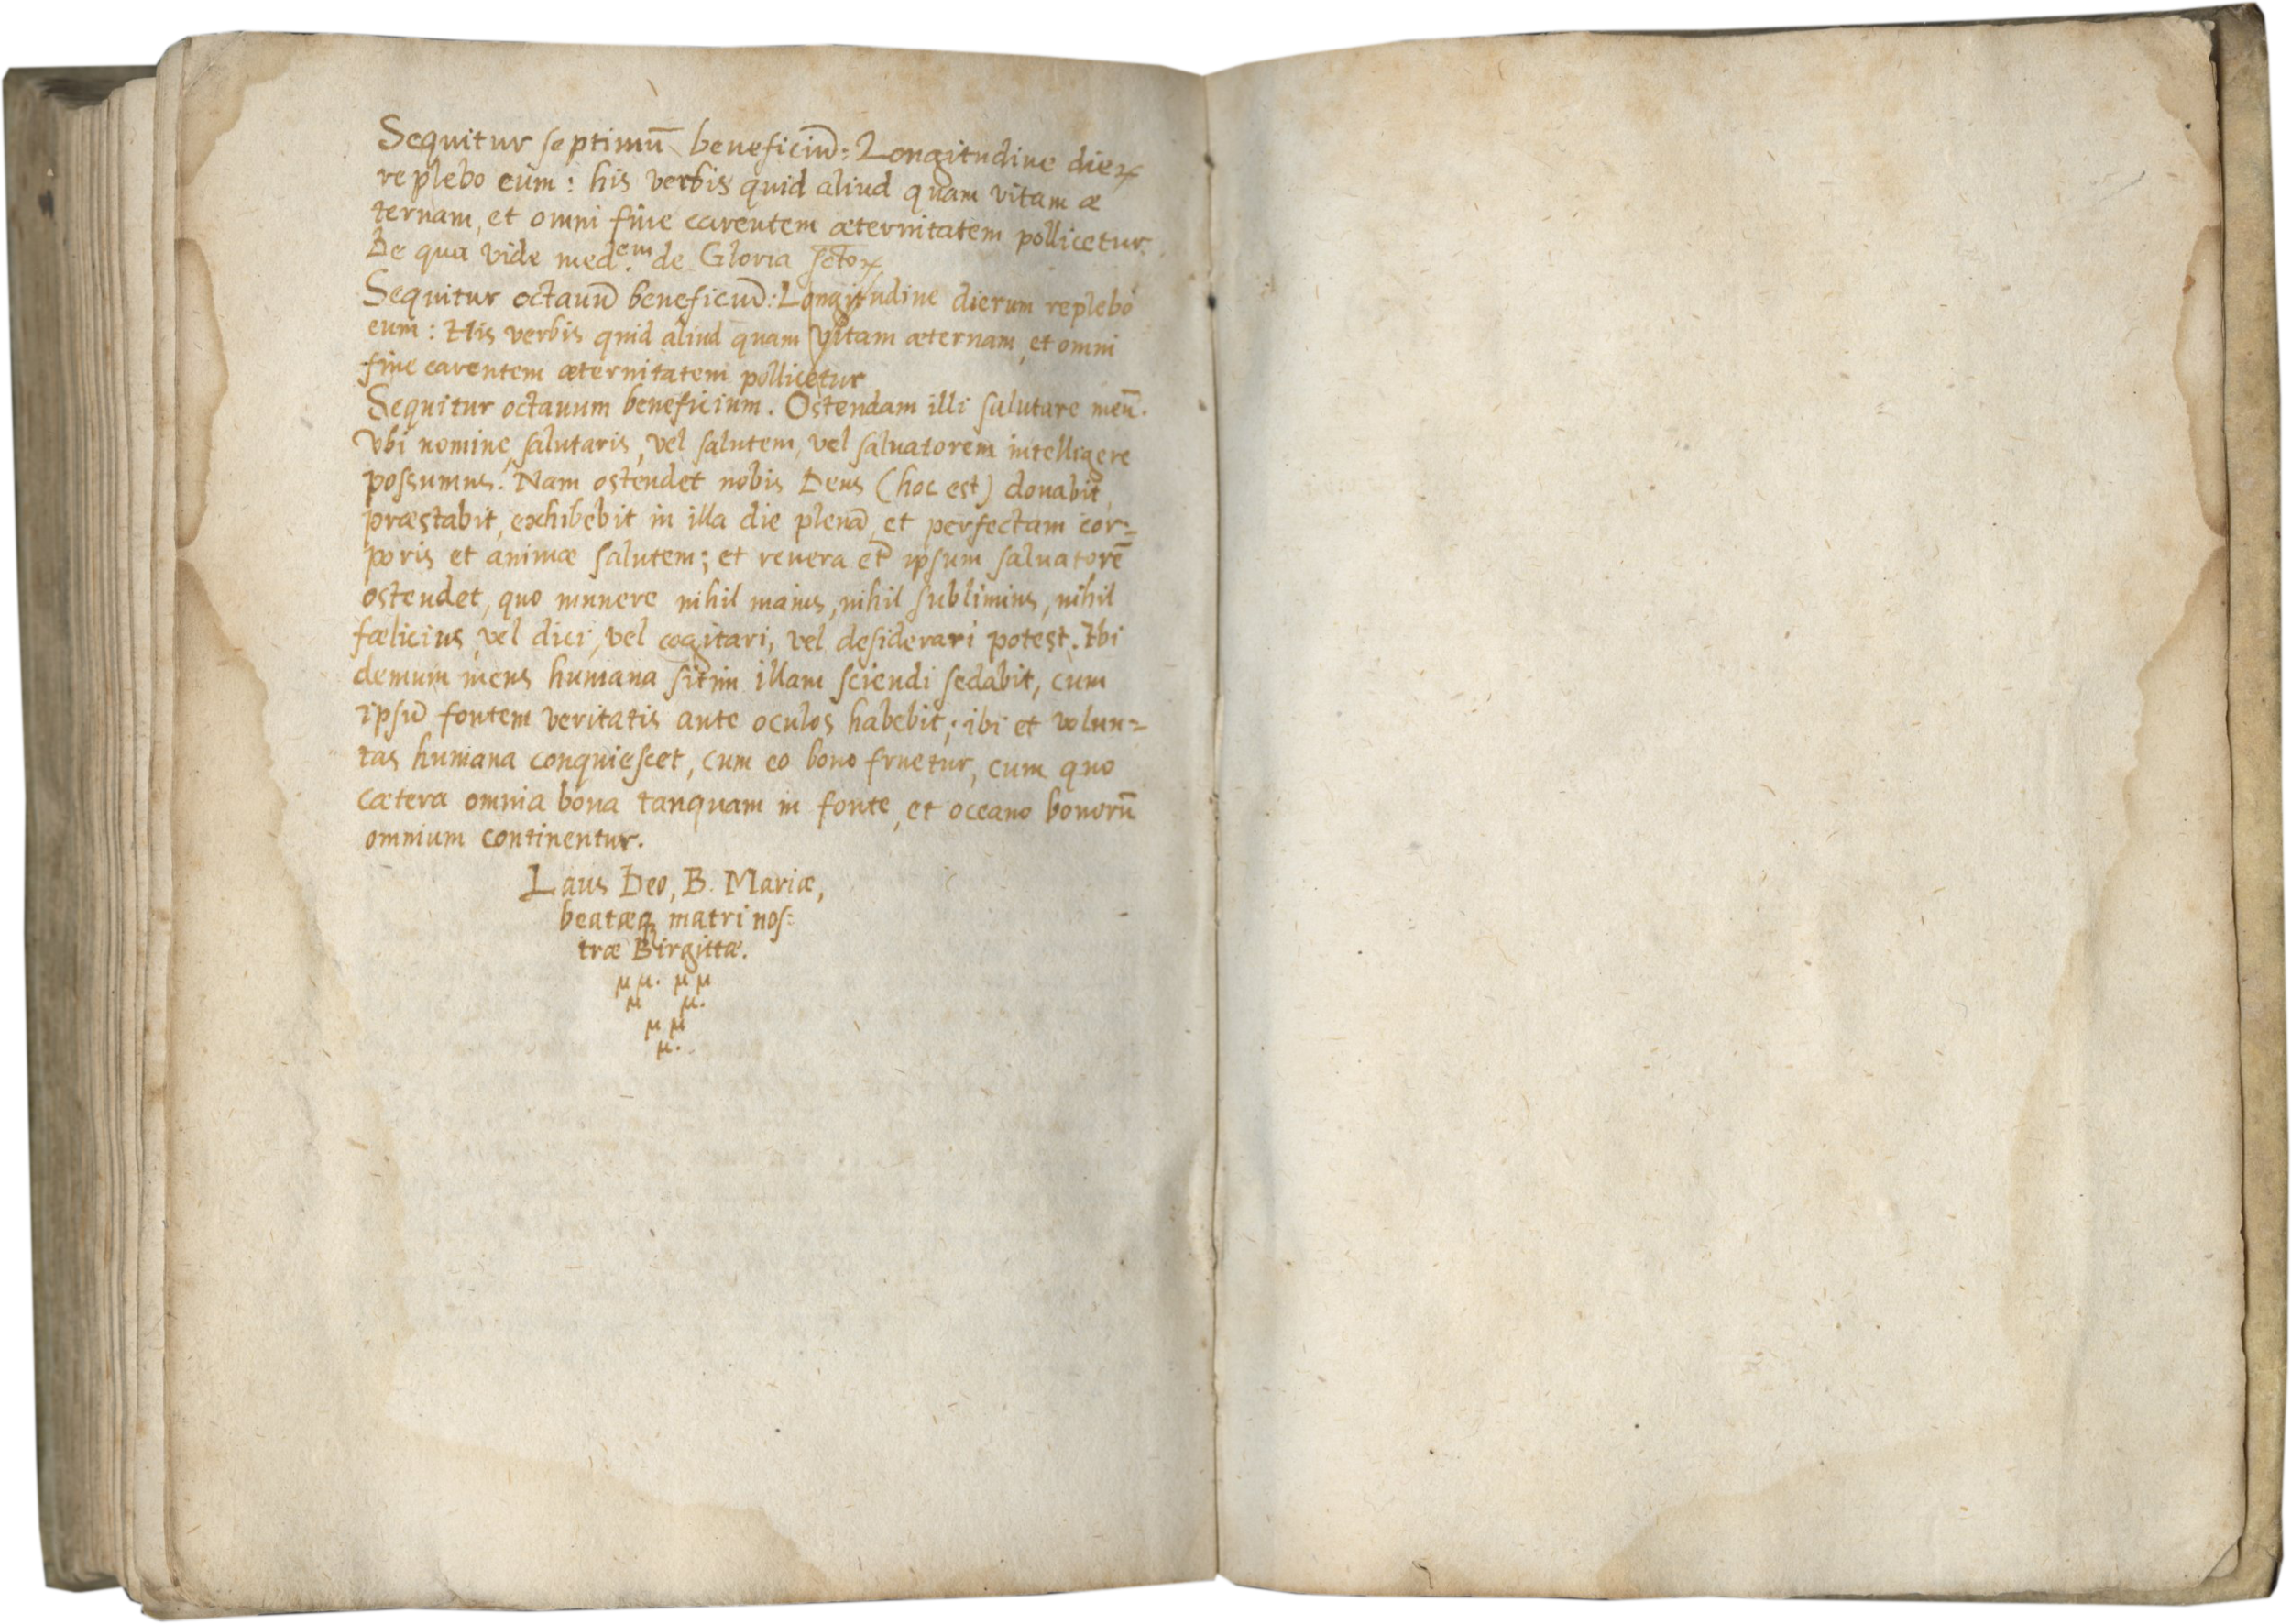 Sequitur septimū beneficiū: Longitudine dieꝝ
replebo eum: his verbis quid aliud quam vitam æ
ternam, et omni fine carentem æternitatem pollicetur.
De qua vide med.em de Gloria sctoꝝ
Sequitur octauū beneficiū: Longitudine dierum replebo
eum: His verbis quid aliud quam vitam æternam, et omni
fine carentem æternitatem pollicetur
Sequitur octauum beneficium. Ostendam illi salutare meū.
Vbi nomine salutaris, vel salutem, vel saluatorem intelligere
possumus. Nam ostendet nobis Deus (hoc est) donabit,
præstabit, exhibebit in illa die plenā et perfectam cor=
poris et animæ salutem; et reuera et ipsum saluatorē
ostendet, quo munere nihil maius, nihil sublimius, nihil
fælicius, vel dici, vel cogitari, vel desiderari potest. Ibi
demum mens humana sitim illam sciendi sedabit, cum
ipsū fontem veritatis ante oculos habebit; ibi et volun=
tas humana conquiescet, cum eo bono fruetur, cum quo
cætera omnia bona tanquam in fonte, et oceano bonorū
omnium continentur.
Laus Deo, B. Mariæ,
beatæq matri nos:
træ Birgittæ.
µ µ. µ µ
µ µ.
µ µ
µ.